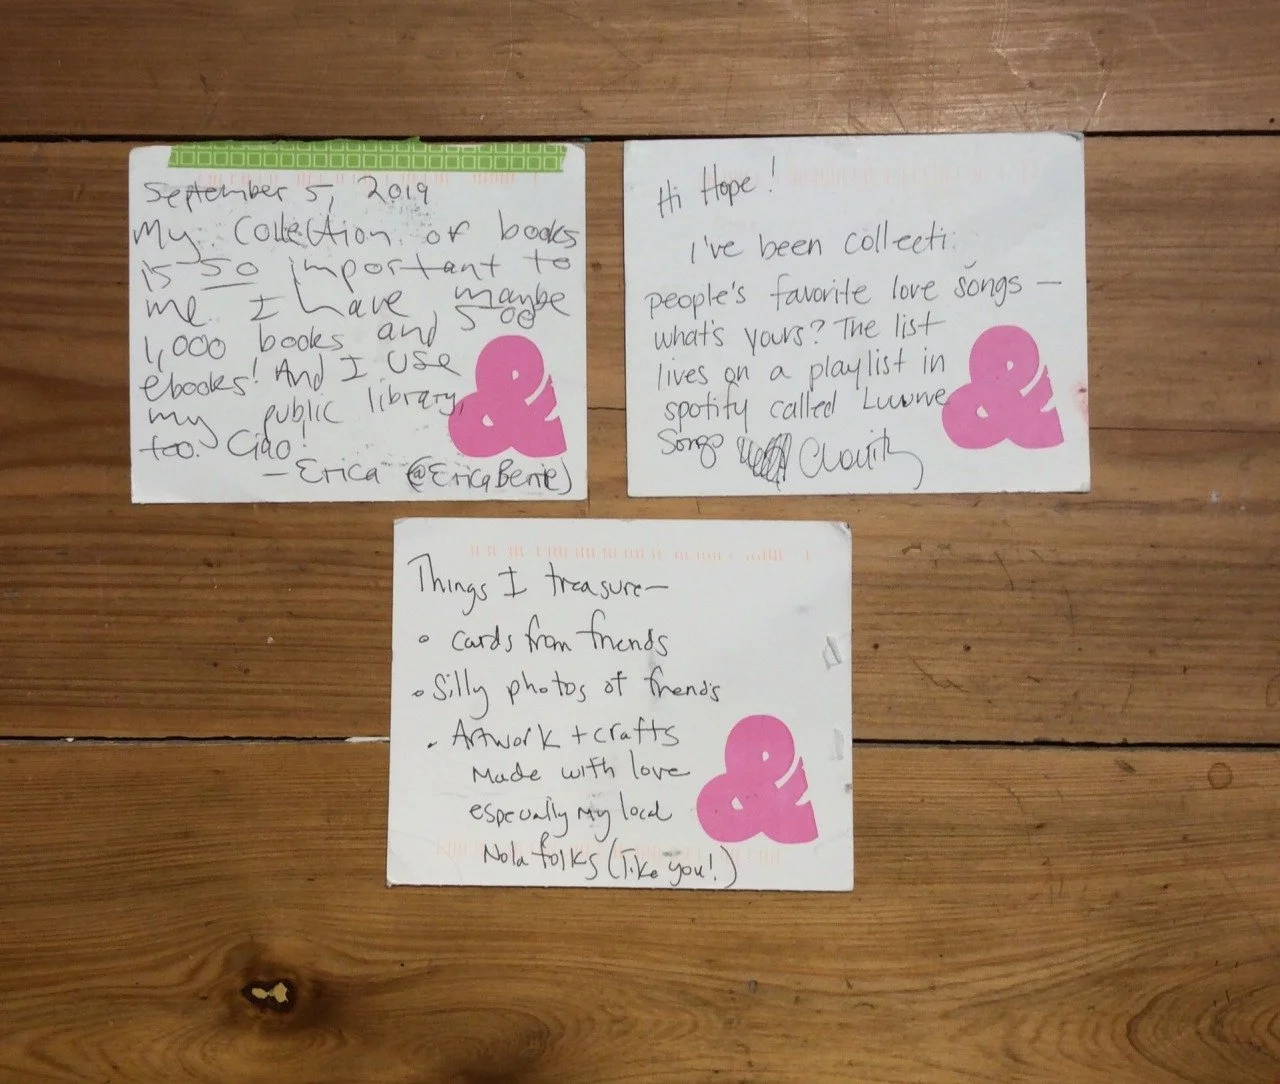 September 5, 2019
My collection of books
is so important to
me. I have maybe
1,000 books and 500
ebooks! And I use
my public library,
too. Ciao!
— Erica (@EricaBerrie)
Hi Hope!
I've been collecti
people's favorite love songs —
what's yours? The list
lives on a playlist in
spotify called Luuuve
Songs
Things I treasure—
• cards from friends
• Silly photos of friends
• Artwork + crafts
Made with love
especially my local
Nola folks (like you!)